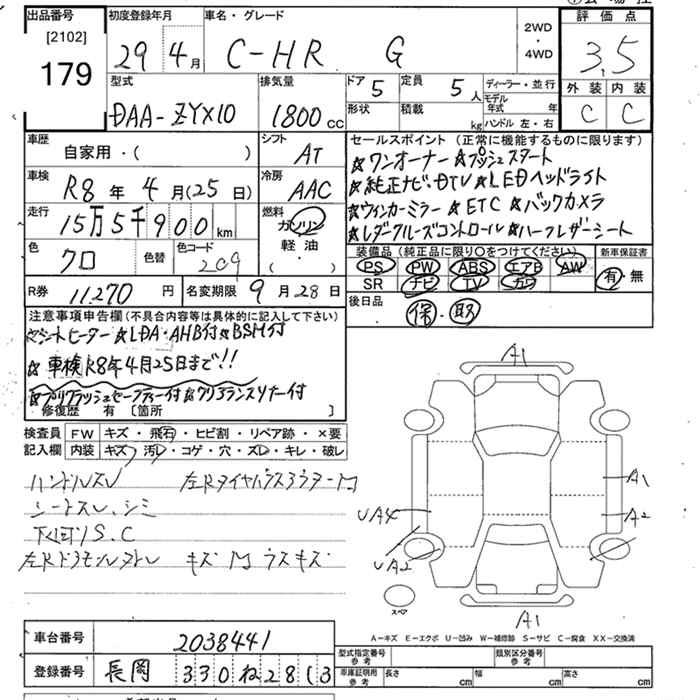 出品番号 初度登録年月 車名・グレード 評価点
[2102]
179
29年 4月 C-HR G
2WD
・
4WD
3.5
外装 内装
C C
型式 排気量 ドア 5 定員 5人 ディーラー・並行
DAA-ZYX10 1800cc 形状 積載 kg
モデル年式 年
ハンドル 左・右
車歴 シフト セールスポイント (正常に機能するものに限ります)
自家用・( ) AT
☆ワンオーナー ☆プッシュスタート
車検 冷房
R8年 4月(25日) AAC
☆純正ナビ・DTV ☆LEDヘッドライト
走行 燃料
15万5千900km
ガソリン
軽油
( )
☆ウィンカーミラー ☆ETC ☆バックカメラ
☆レダクルーズコントロール ☆ハーフレザーシート
色 色替 色コード
クロ 209
装備品 (純正品に限り〇をつけてください) 新車保証書
PS PW ABS エアB AW
SR ナビ TV カワ
有・無
R券 11270円 名変期限 9月28日
後日品 保・取
注意事項申告欄 (不具合内容等は具体的に記入して下さい)
☆シートヒーター ☆LDA・AHB付 ☆BSM付
☆車検R8年4月25日まで!!
☆プリクラッシュセーフティー付 ☆クリアランスソナー付
修復歴 有 〔箇所 〕
検査員 FW キズ・飛石・ヒビ割・リペア跡・×要
記入欄 内装 キズ・汚レ・コゲ・穴・ズレ・キレ・破レ
ハンドルスレ
シートスレ、シミ
下回りS.C
キズ ウスキズ
A1
A1
A2
UA4
UA2
A1
スペア
A-キズ E-エクボ U-凹み W-補修跡 S-サビ C-腐食 XX-交換済
車台番号 2038441
登録番号 長岡 330 ね 2813
型式指定番号 参考 類別区分番号 参考
車庫証明用 参考 長さ cm 幅 cm 高さ cm